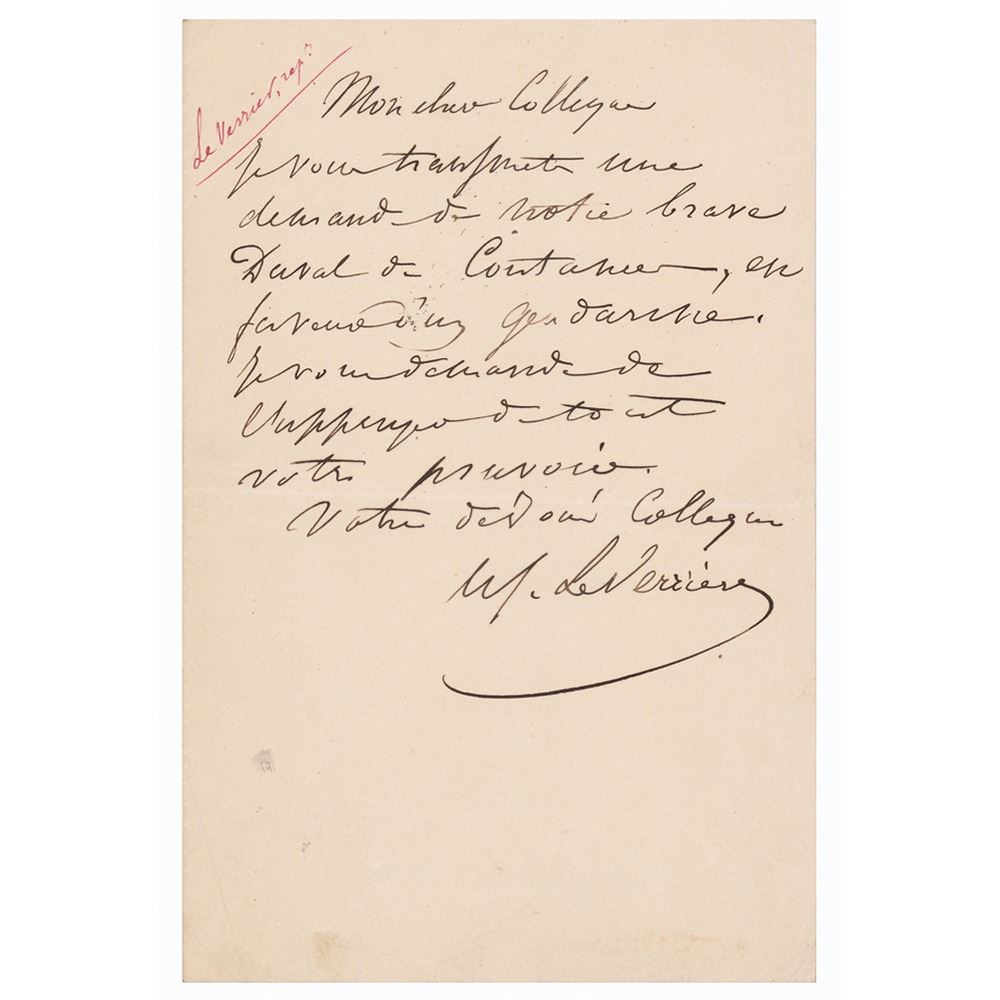 Le Verrier, rep.r
Mon cher Collegue
Je vous transmets une
demande de notre brave
Duval de Coutances, en
faveur d'un gendarme.
Je vous demande de
l'appuyer de tout
votre pouvoir.
Votre dévoué Collegue
LeVerrier